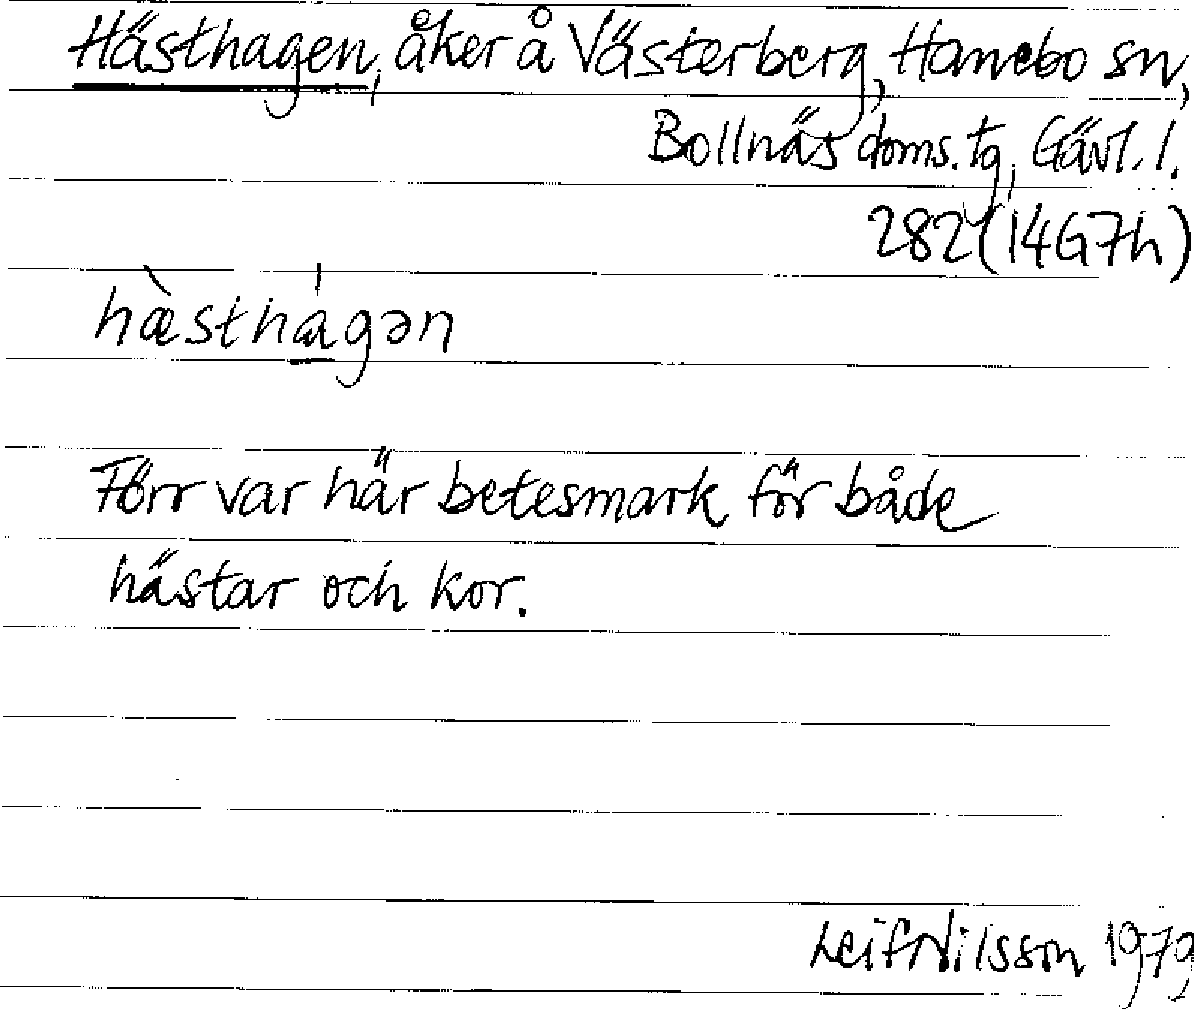 Hästhagen, åker å Västerberg, Hanebo sn,
Bollnäs doms. tg, Gävl. l.
282 (14G7h)
hæ̀sthá̱gən
Förr var här betesmark för både
hästar och kor.
Leif Nilsson 1979